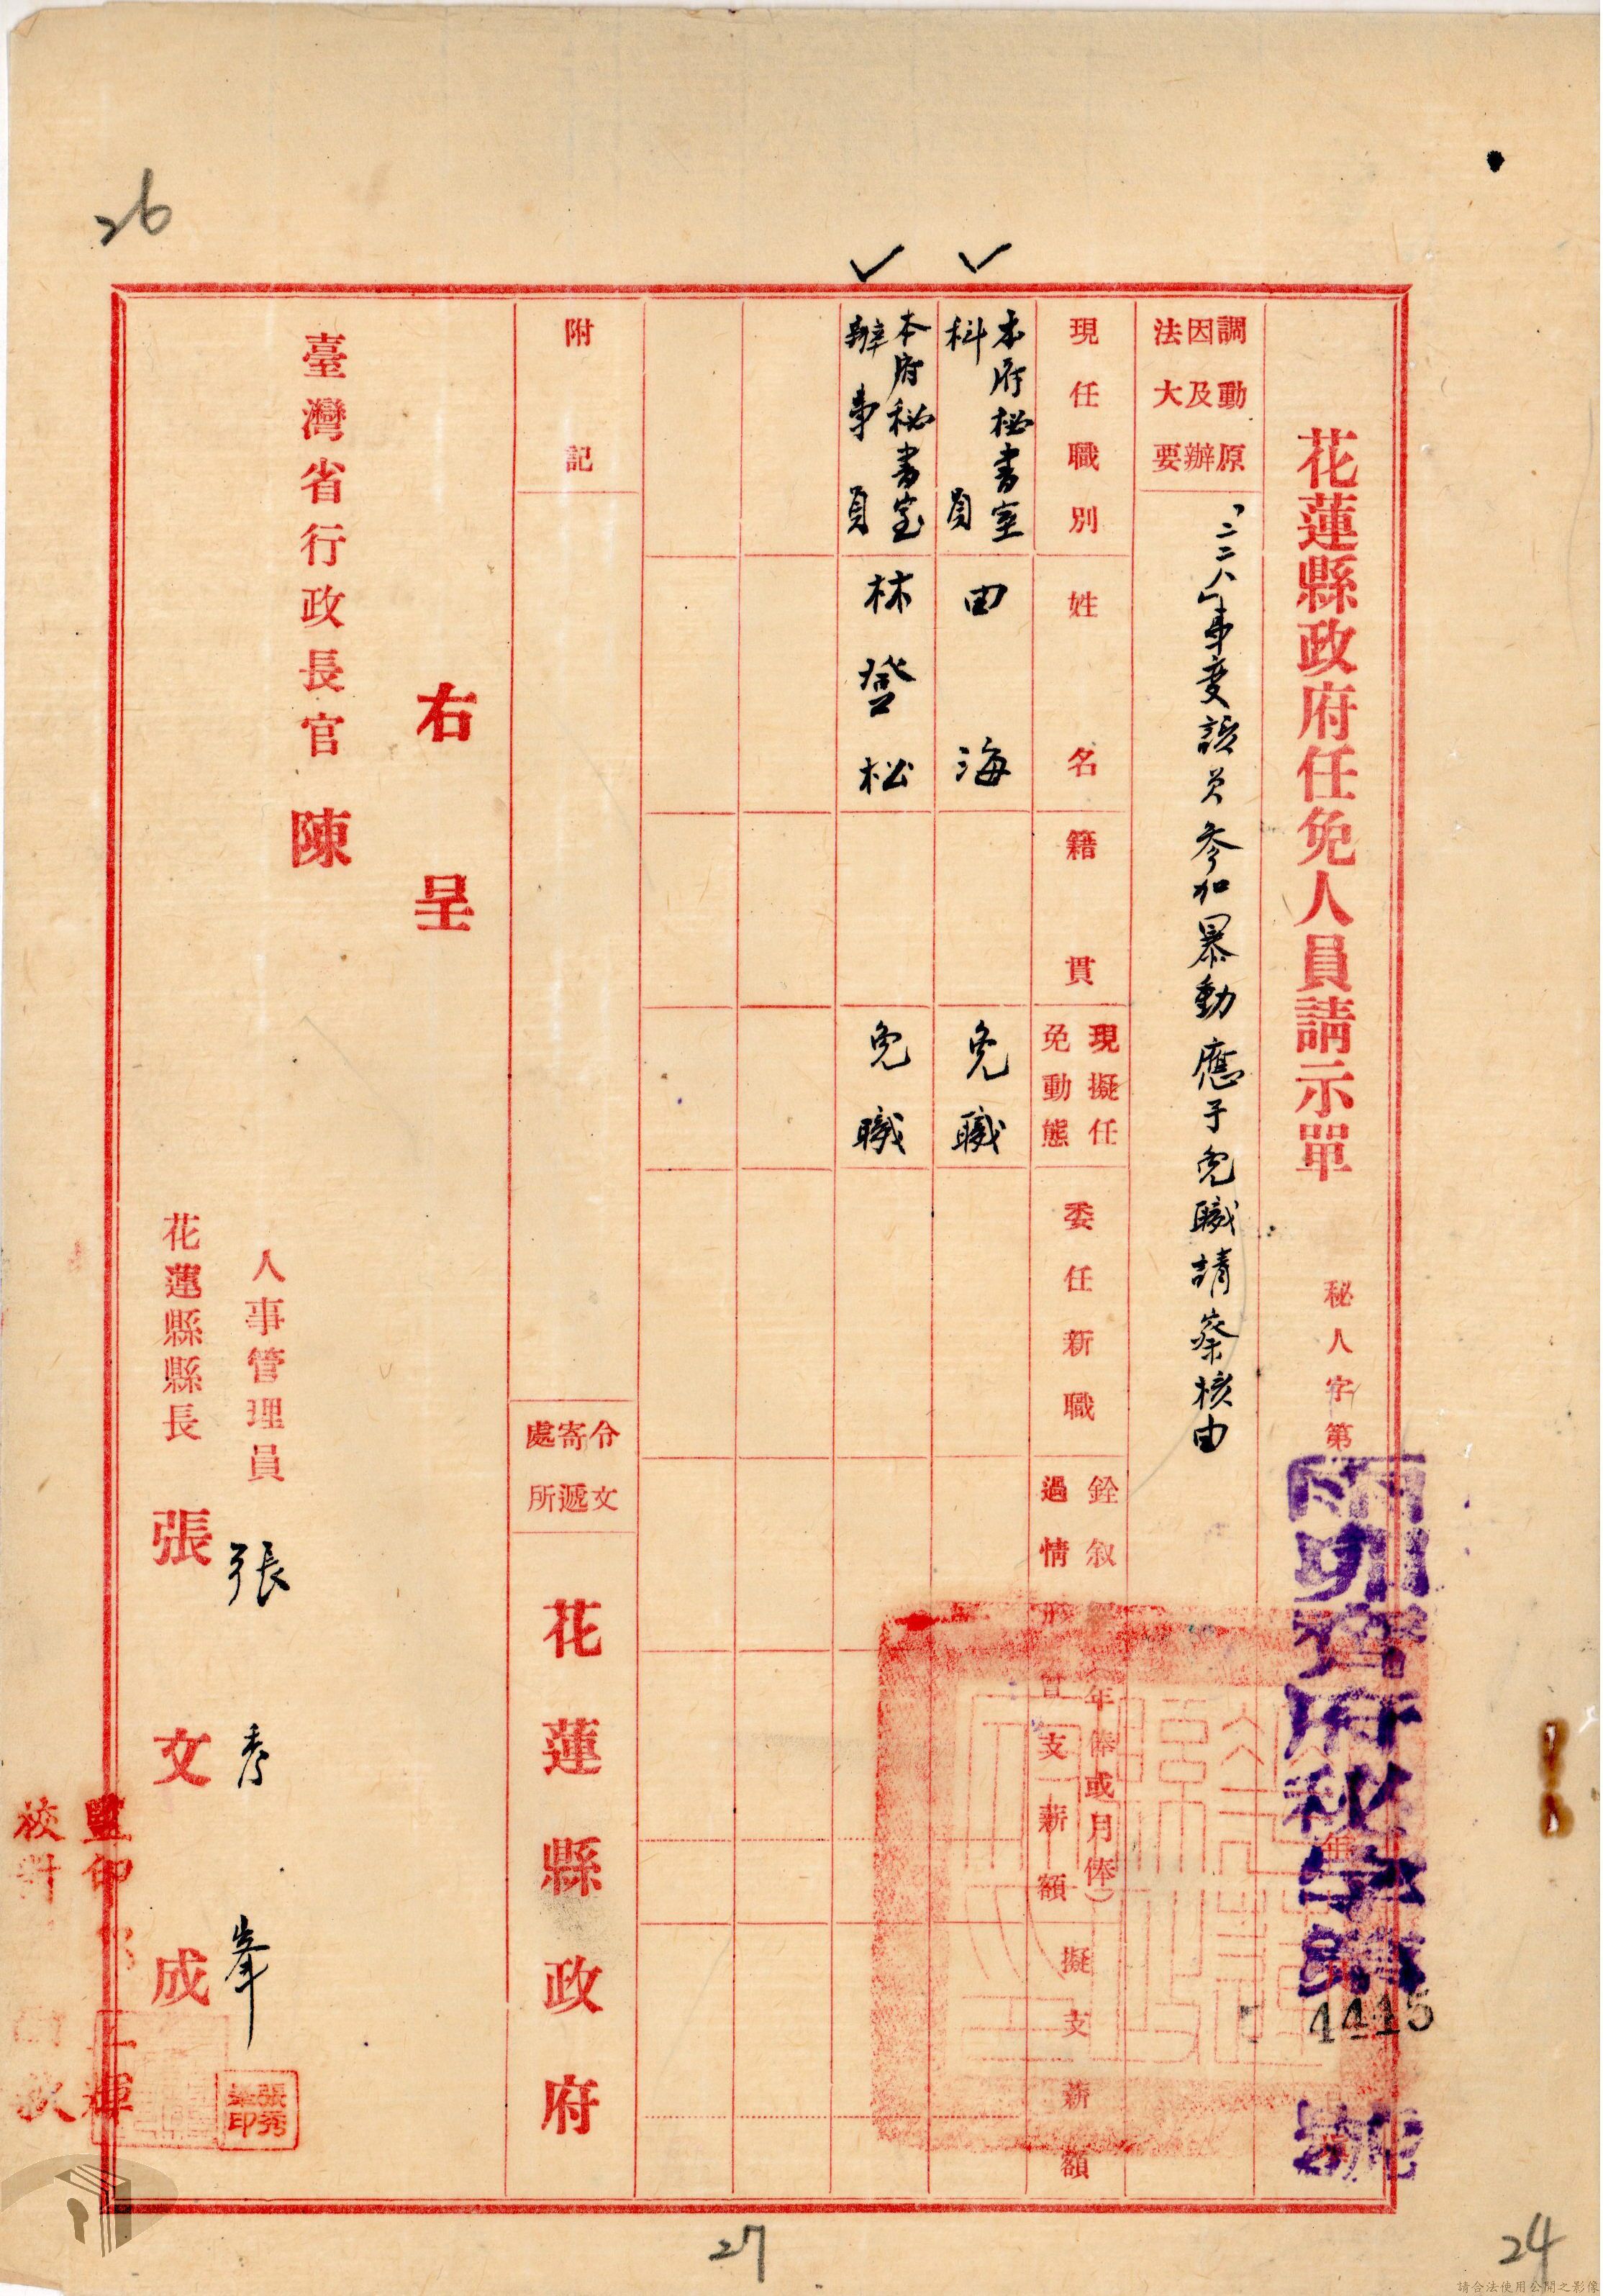 花蓮縣政府任免人員請示單
秘人字第
4415
號
調動原因及辦法大要
「二二八」事變該員參加暴動應予免職請察核由
現任職別
姓名
籍貫
現擬任免動態
委任新職
銓敘
過情形
(年俸或月俸)
支薪額
擬支薪額
本府秘書室科員
田海
免職
本府秘書室辦事員
林登松
免職
附記
令文寄遞處所
花蓮縣政府
右呈
臺灣省行政長官 陳
人事管理員 張秀峯
張秀峯印
花蓮縣縣長 張文成
監印
校對
26
27
24
請合法使用公開之影像